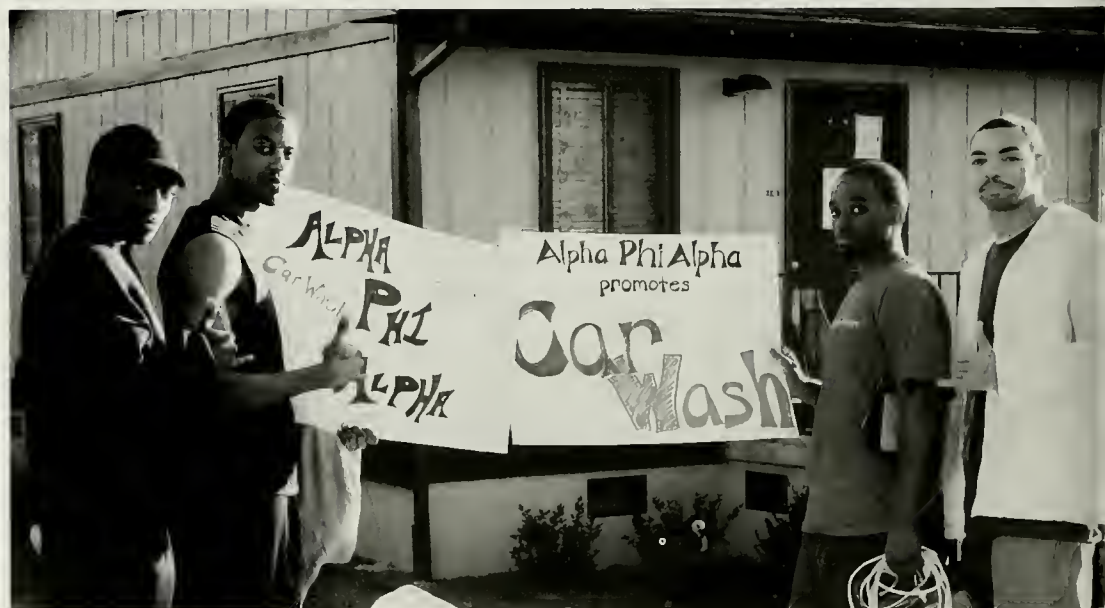 ALPHA
Car Wash
PHI
ALPHA
Alpha Phi Alpha
promotes
Car
Wash